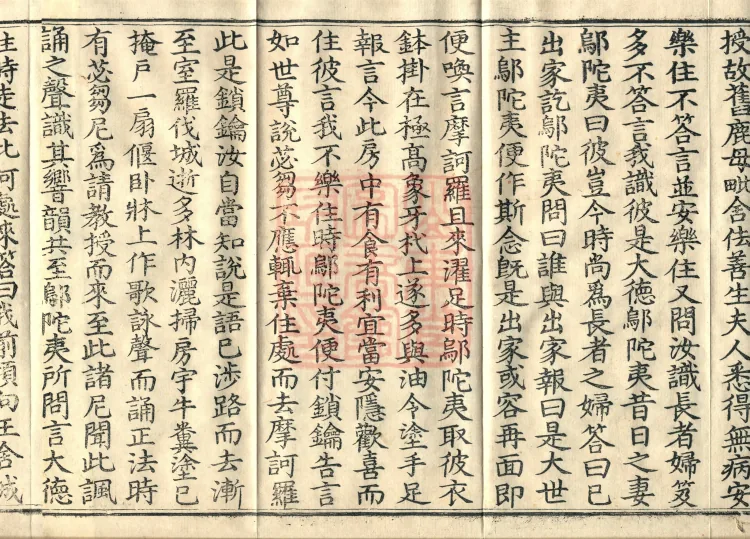 授故舊鹿母毗舍佉善生夫人悉得無病安
樂住不答言並安樂住又問汝識長者婦笈
多不答言我識彼是大德鄔陀夷昔日之妻
鄔陀夷曰彼豈今時尚爲長者之婦答曰已
出家訖鄔陀夷問曰誰與出家報曰是大世
主鄔陀夷便作斯念旣是出家或容再面即
便喚言摩訶羅且來濯足時鄔陀夷取彼衣
鉢掛在極高象牙杙上遂多與油令塗手足
報言今此房中有食有利宜當安隱歡喜而
住彼言我不樂住時鄔陀夷便付鎖鑰告言
如世尊說苾芻不應輒棄住處而去摩訶羅
此是鎖鑰汝自當知說是語已涉路而去漸
至室羅伐城逝多林內灑掃房宇牛糞塗已
掩戶一扇偃臥牀上作歌詠聲而誦正法時
有苾芻尼爲請教授而來至此諸尼聞此諷
誦之聲識其響韻共至鄔陀夷所問言大德
住時走去比何處來答曰我前須向王舍城